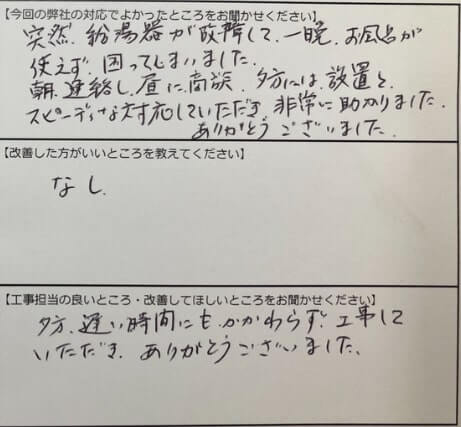 【今回の弊社の対応でよかったところをお聞かせください】
突然、給湯器が故障して、一晩、お風呂が
使えず、困ってしまいました。
朝、連絡し、昼に商談、夕方には、設置と、
スピーディな対応していただき、非常に助かりました。
ありがとうございました。
【改善した方がいいところを教えてください】
なし。
【工事担当の良いところ・改善してほしいところをお聞かせください】
夕方、遅い時間にもかかわらず、工事して
いただき、ありがとうございました。